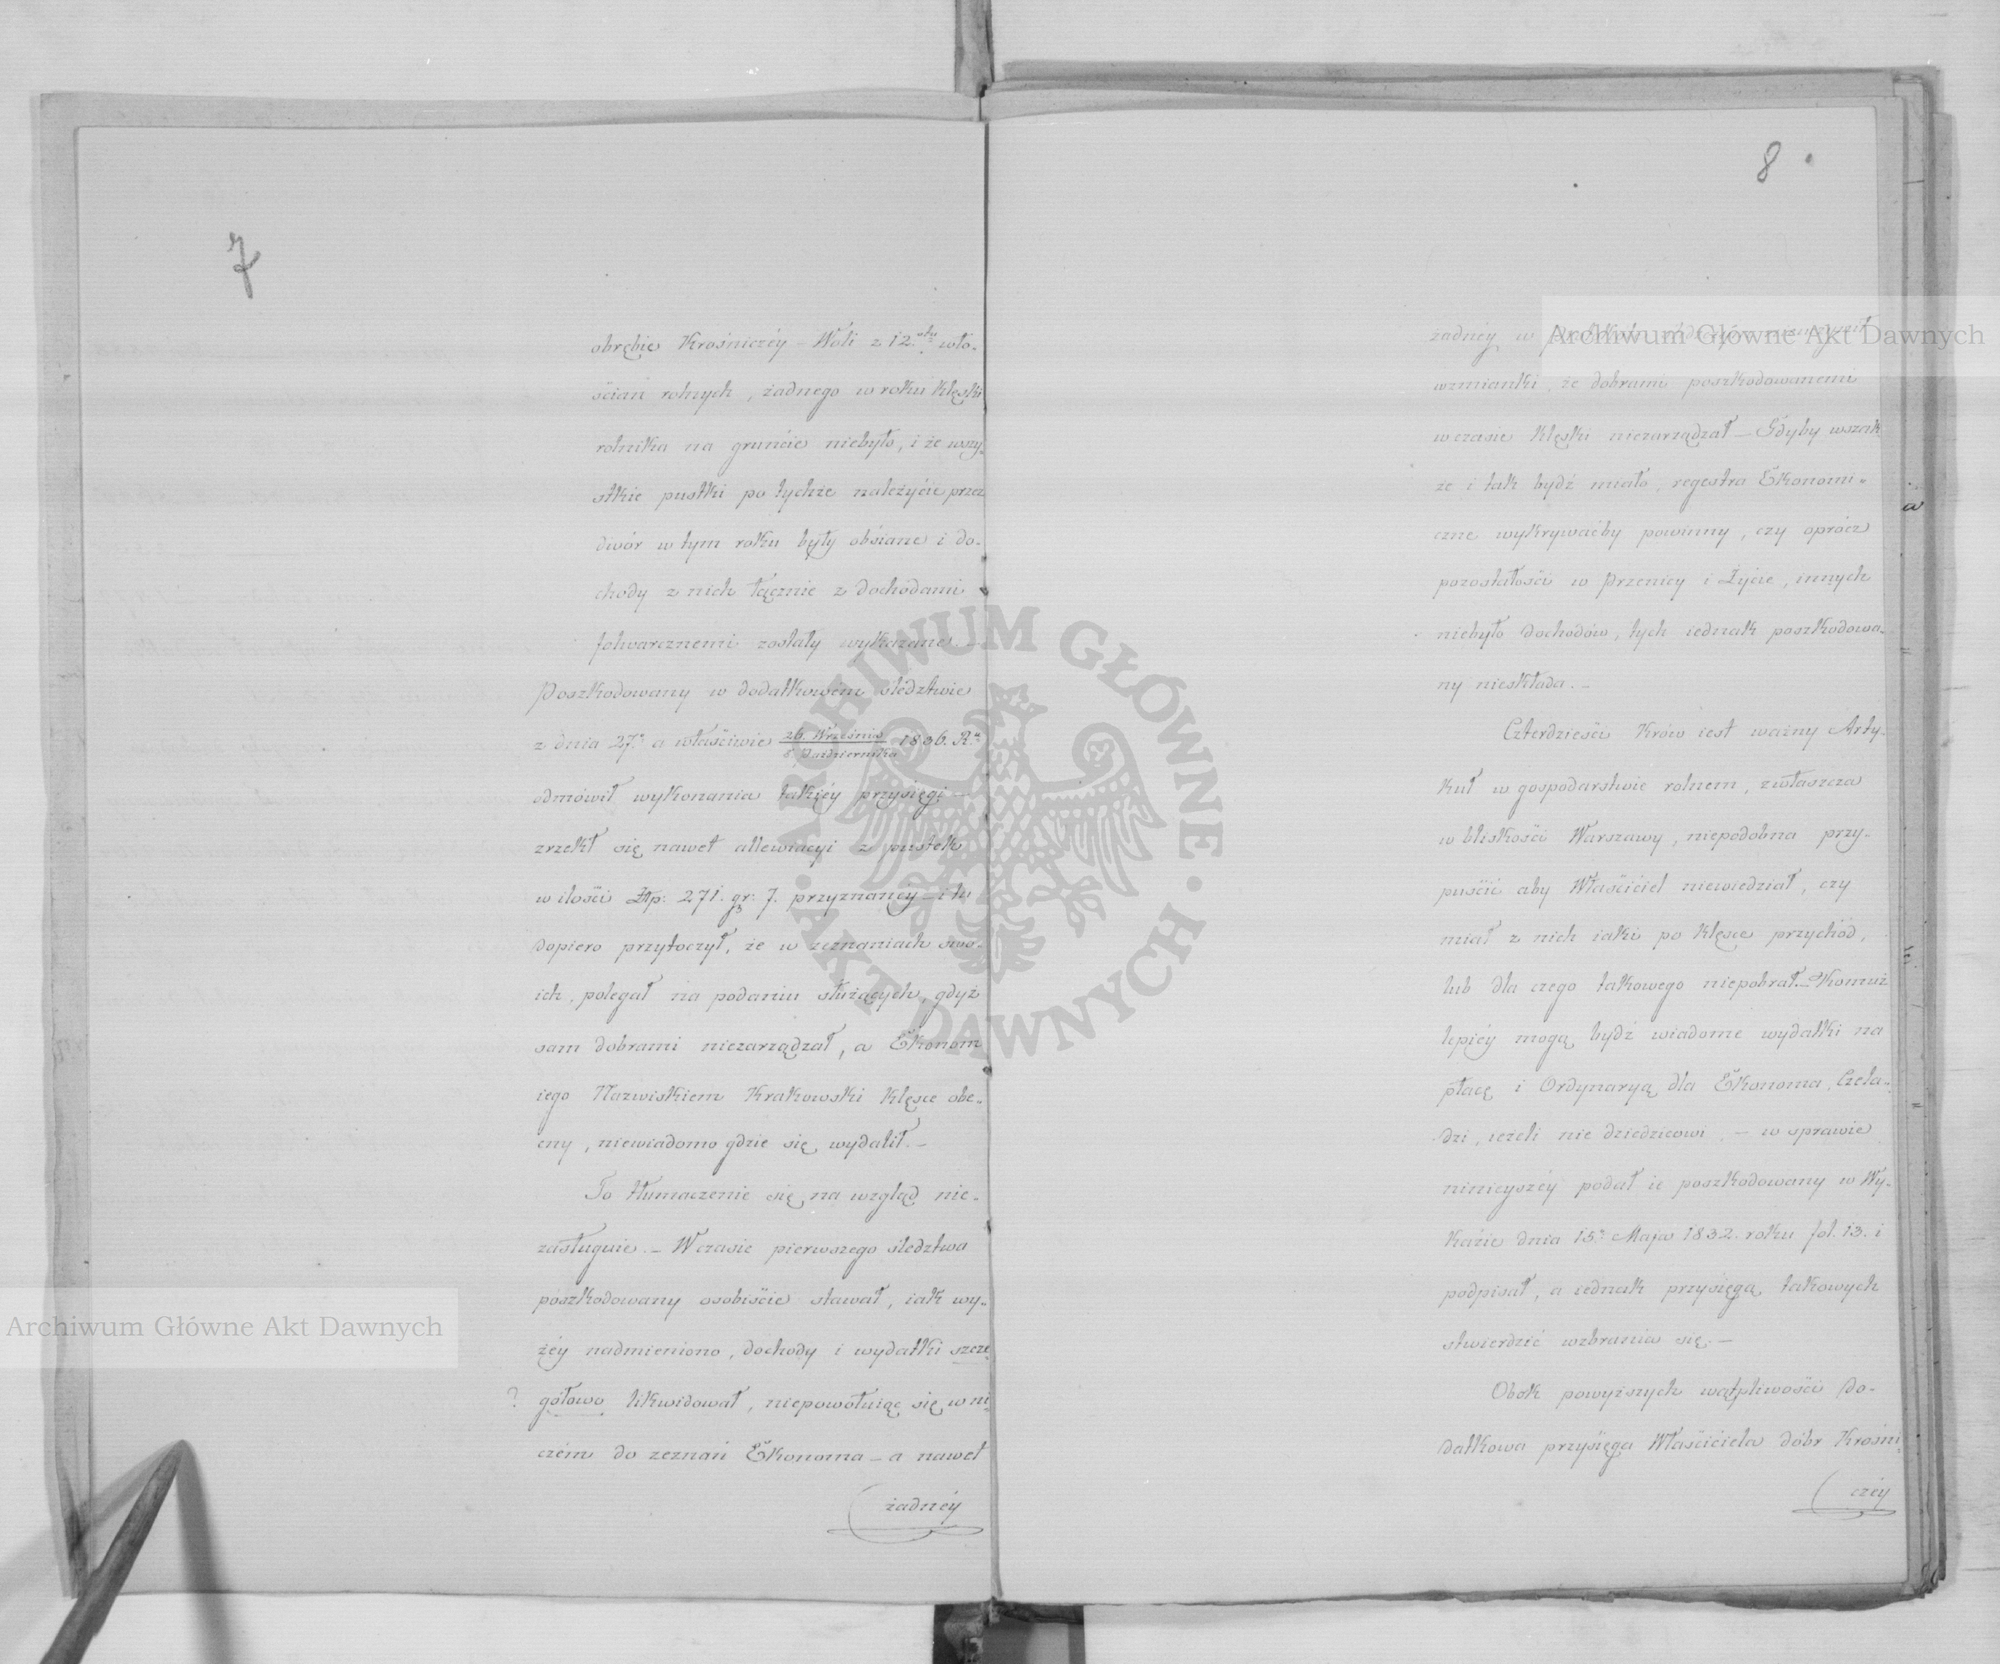 7
obrębie Krośniczéy-Woli z 12.stu wło-
ścian rolnych, żadnego w roku klęski
rolnika na gruncie niebyło, i że wszy-
stkie pustki po tychże należycie przez
dwór w tym roku były obsiane i do-
chody z nich łącznie z dochodami
folwarcznemi zostały wykazane.–
Poszkodowany w dodatkowem śledztwie
z dnia 27.º a właściwie 26. Września / 8. Października 1836. R.u
odmówił wykonania takiéy przysięgi –
zrzekł się nawet allewiacyi z pustek
w ilości Złp: 271. gr: 7. przyznanéy – i tu
dopiero przytoczył, że w zeznaniach swo-
ich, polegał na podaniu służących, gdyż
sam dobrami niezarządzał, a Ekonom
iego Nazwiskiem Krakowski klęsce obe-
cny, niewiadomo gdzie się wydalił.–
To tłumaczenie się na wzgląd nie-
zasługuie.– W czasie pierwszego śledztwa
poszkodowany osobiście stawał, iak wy-
żéy nadmieniono, dochody i wydatki szcze-
? gółowo likwidował, niepowołuiąc się w ni-
czém do zeznań Ekonoma – a nawet
żadnéy
8
żadnéy w
wzmianki, że dobrami poszkodowanemi
w czasie klęski niezarządzał – Gdyby wszak-
że i tak bydź miało, regestra Ekonomi-
czne wykrywaćby powinny, czy oprócz
pozostałości w Pszenicy i Życie, innych
niebyło dochodów, tych iednak poszkodowa-
ny nieskłada.–
Czterdzieści Krów iest ważny Arty-
kuł w gospodarstwie rolnem, zwłaszcza
w bliskości Warszawy, niepodobna przy-
puścić aby Właściciel niewiedział, czy
miał z nich iaki po klęsce przychód,
lub dla czego takowego niepobrał.– Komuż
lepiéy mogą bydź wiadome wydatki na
płacę i Ordynaryą dla Ekonoma, Czela-
dzi, ieżeli nie dziedzicowi.– w sprawie
ninieyszéy podał ie poszkodowany w Wy-
kazie dnia 15.º Maja 1832. roku fol. 13. i
podpisał, a iednak przysięgą takowych
stwierdzić wzbrania się.–
Obok powyższych wątpliwości do-
datkowa przysięga Właściciela dóbr Krośni-
czéy
Archiwum Główne Akt Dawnych
Archiwum Główne Akt Dawnych
ARCHIWUM GŁÓWNE · AKT DAWNYCH ·